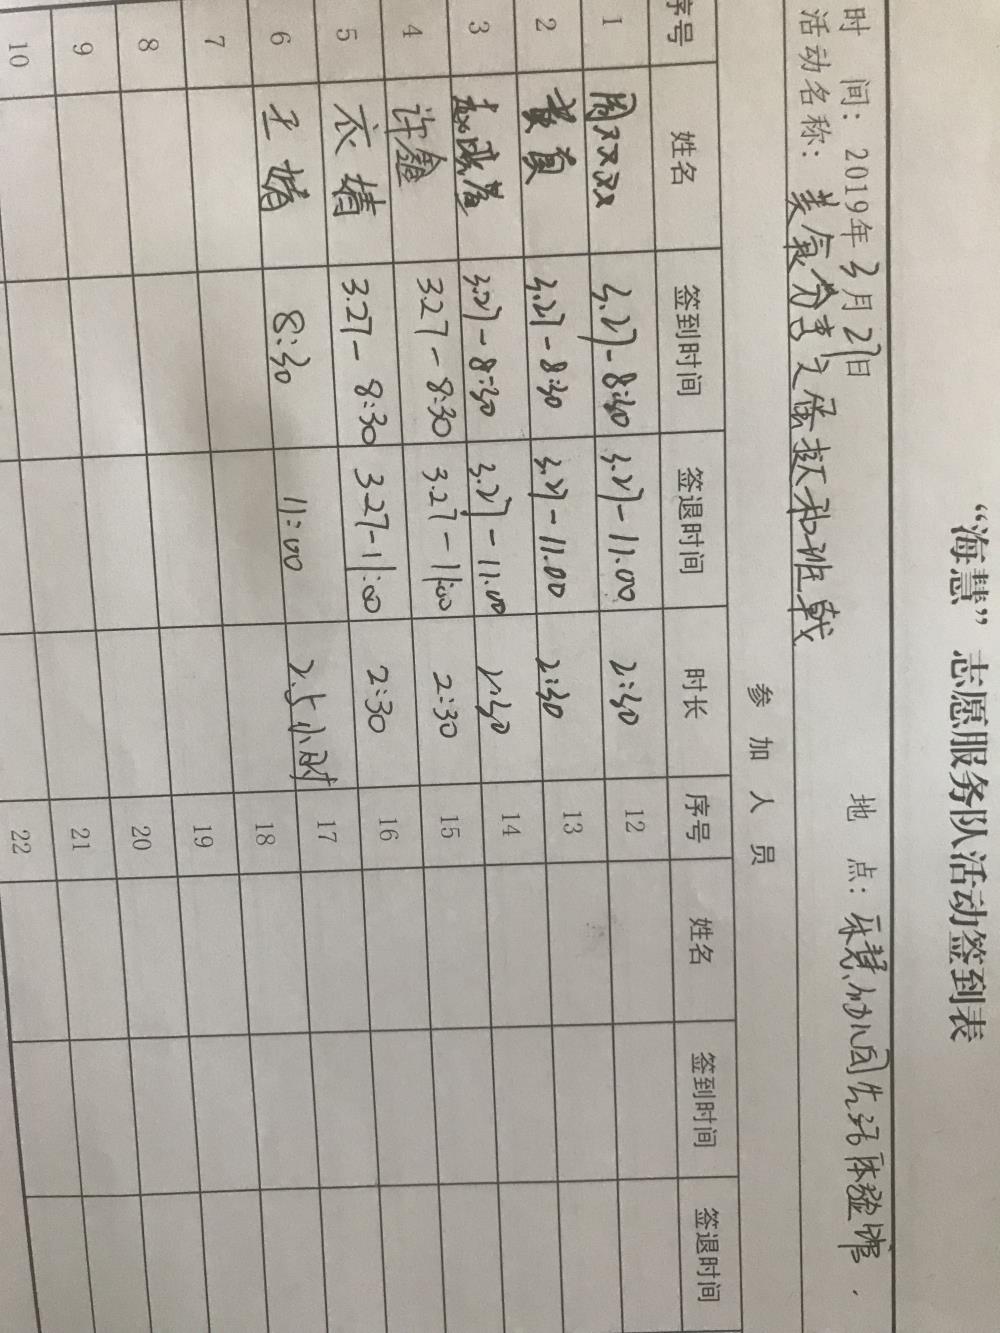 “海慧”志愿服务队活动签到表
时 间：2019年3月27日 地 点：
活动名称：
参 加 人 员
序号 姓名 签到时间 签退时间 时长 序号 姓名 签到时间 签退时间
1 周双双 3.27-8:30 3.27-11.00 2:30 12
2 黄员 3.27-8:30 3.27-11.00 2:30 13
3 3.27-8:30 3.27-11.00 2:30 14
4 许鑫 3.27-8:30 3.27-11:00 2:30 15
5 衣婧 3.27-8:30 3.27-11:00 2:30 16
6 王婧 8:30 11:00 2.5小时 17
7 18
8 19
9 20
10 21
22